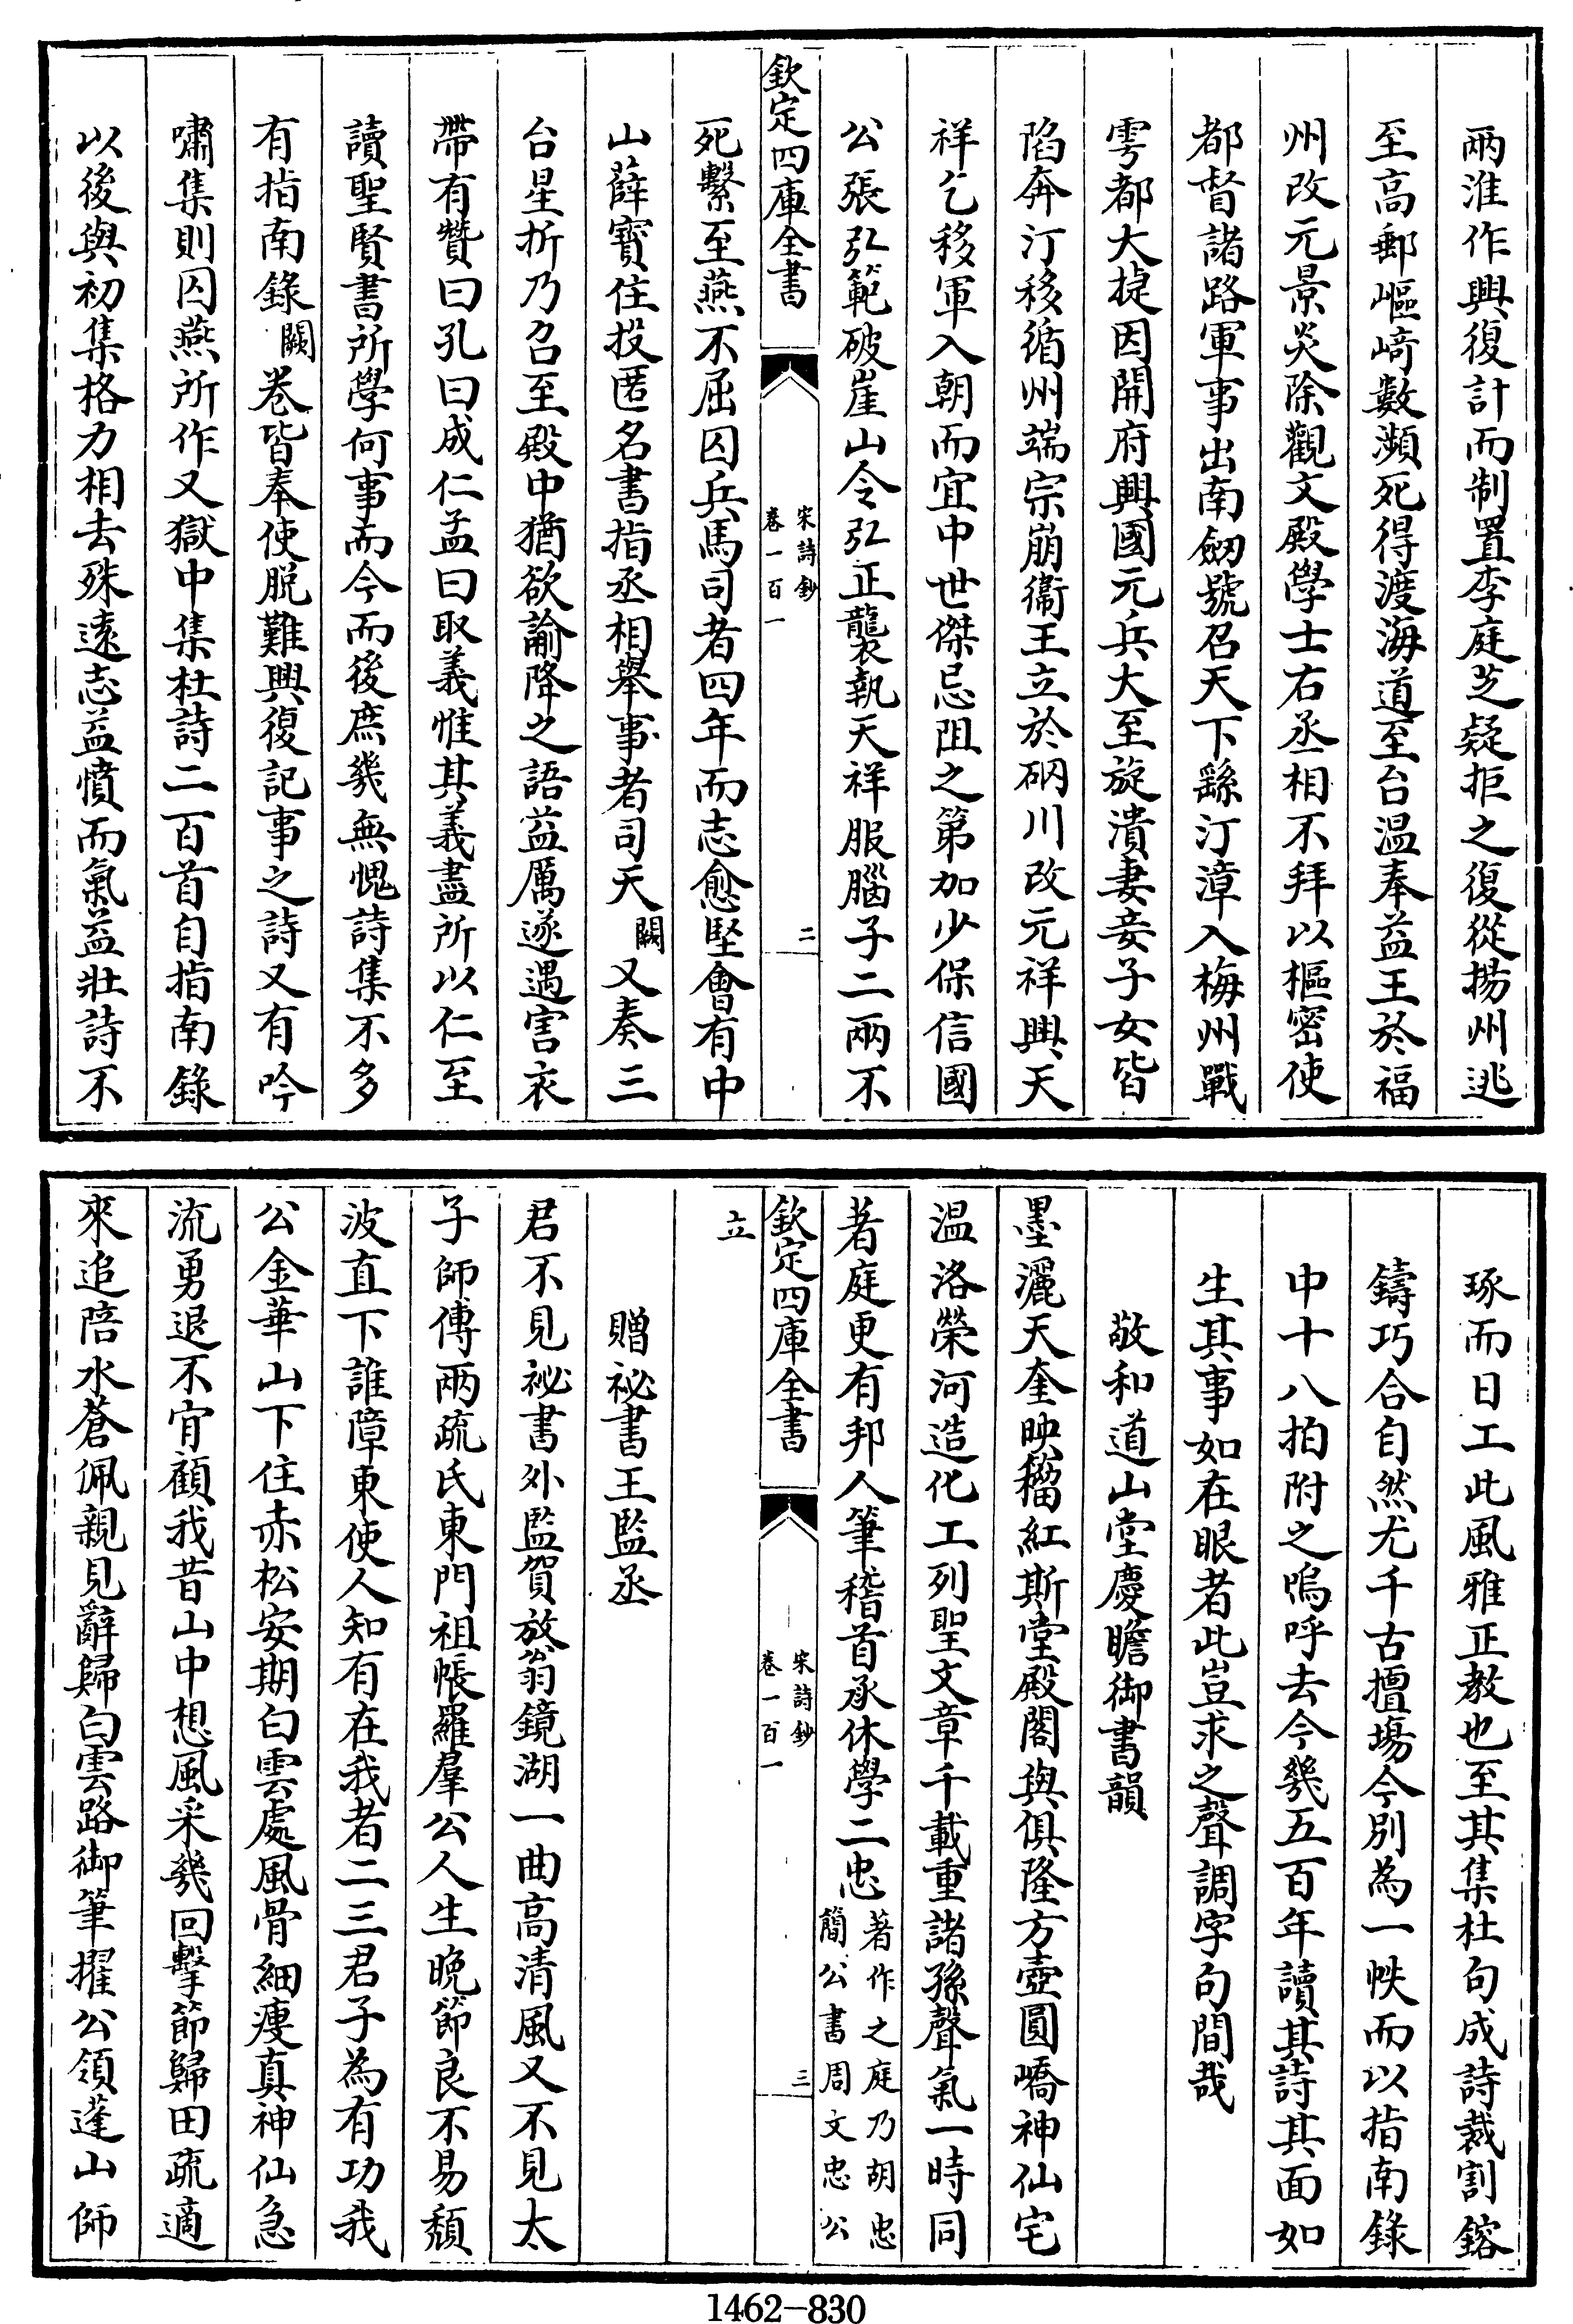 兩淮作興復計而制置李庭芝疑拒之復從揚州逃
至高郵嶇﨑數瀕死得渡海道至台温奉益王於福
州改元景炎除觀文殿學士右丞相不拜以樞密使
都督諸路軍事出南劒號召天下繇汀漳入梅州戰
雩都大捷因開府興國元兵大至旋潰妻妾子女皆
陷奔汀移循州端宗崩衞王立於硇川改元祥興天
祥乞移軍入朝而宜中世傑忌阻之第加少保信國
公張弘範破崖山令弘正襲執天祥服腦子二兩不
欽定四庫全書
宋詩鈔
卷一百一
二
死繫至燕不屈囚兵馬司者四年而志愈堅會有中
山薛寳住投匿名書指丞相舉事者司天闕又奏三
台星折乃召至殿中猶欲諭降之語益厲遂遇害衣
帶有贊曰孔曰成仁孟曰取義惟其義盡所以仁至
讀聖賢書所學何事而今而後庶幾無愧詩集不多
有指南錄闕卷皆奉使脱難興復記事之詩又有吟
嘯集則囚燕所作又獄中集杜詩二百首自指南錄
以後與初集格力相去殊遠志益憤而氣益壯詩不
琢而日工此風雅正教也至其集杜句成詩裁割鎔
鑄巧合自然尤千古擅塲今别為一帙而以指南錄
中十八拍附之嗚呼去今幾五百年讀其詩其面如
生其事如在眼者此豈求之聲調字句間哉
敬和道山堂慶瞻御書韻
墨灑天奎映籀紅斯堂殿閣與俱隆方壺圓嶠神仙宅
温洛榮河造化工列聖文章千載重諸孫聲氣一時同
著庭更有邦人筆稽首承休學二忠著作之庭乃胡忠
簡公書周文忠公
欽定四庫全書
宋詩鈔
卷一百一
三
立
贈祕書王監丞
君不見祕書外監賀放翁鏡湖一曲高清風又不見太
子師傅兩疏氏東門祖帳羅羣公人生晚節良不易頽
波直下誰障東使人知有在我者二三君子為有功我
公金華山下住赤松安期白雲處風骨細瘦真神仙急
流勇退不肎顧我昔山中想風采幾回擊節歸田疏適
來追陪水蒼佩親見辭歸白雲路御筆擢公領蓬山師
1462-830